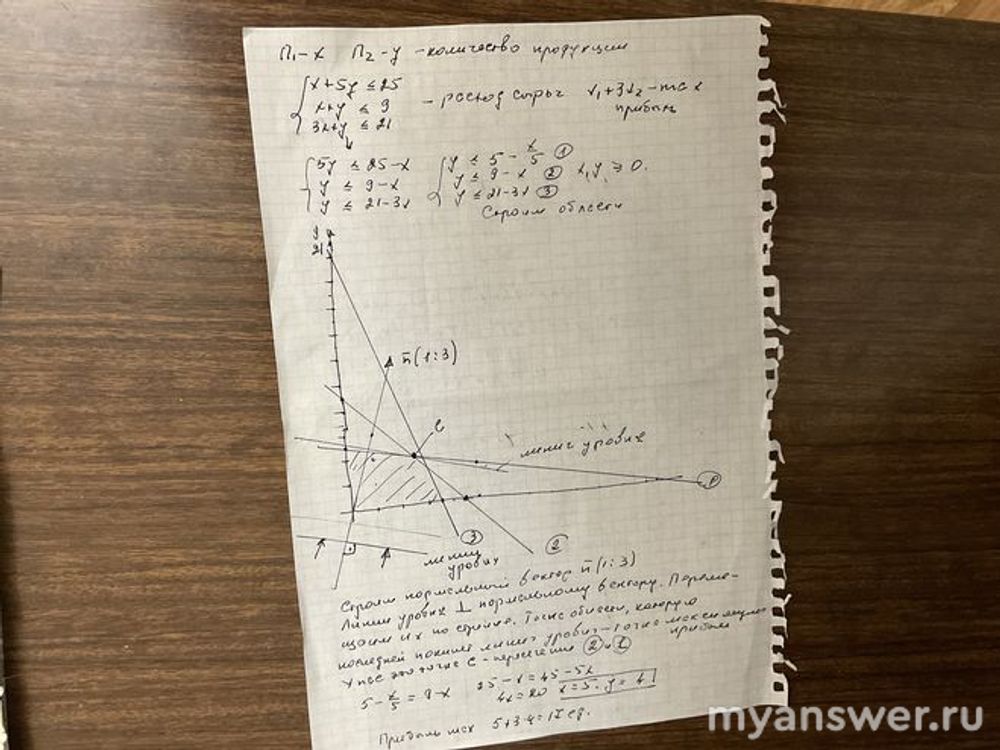 П₁ – x П₂ – y – количество продукции
x + 5y ≤ 25
x + y ≤ 9 – расход сырья x₁ + 3x₂ – max
3x + y ≤ 21 прибыль
5y ≤ 25 – x y ≤ 5 – x/5 ①
y ≤ 9 – x y ≤ 9 – x ② x, y ≥ 0.
y ≤ 21 – 3x y ≤ 21 – 3x ③
Строим области
y
21
n̄ (1:3)
C
линия уровня
③ ②
линии
уровня
Строим нормальный вектор n̄ (1:3)
Линии уровня ⊥ нормальному вектору. Переме-
щаем их по стрелке. Точка области, которую
последней покинет линия уровня – точка максимума
прибыли
У нас это точка C – пересечение ② и ①
5 – x/5 = 9 – x 25 – x = 45 – 5x
4x = 20 x = 5. y = 4
Прибыль max 5 + 3·4 = 17 ед.
myanswer.ru